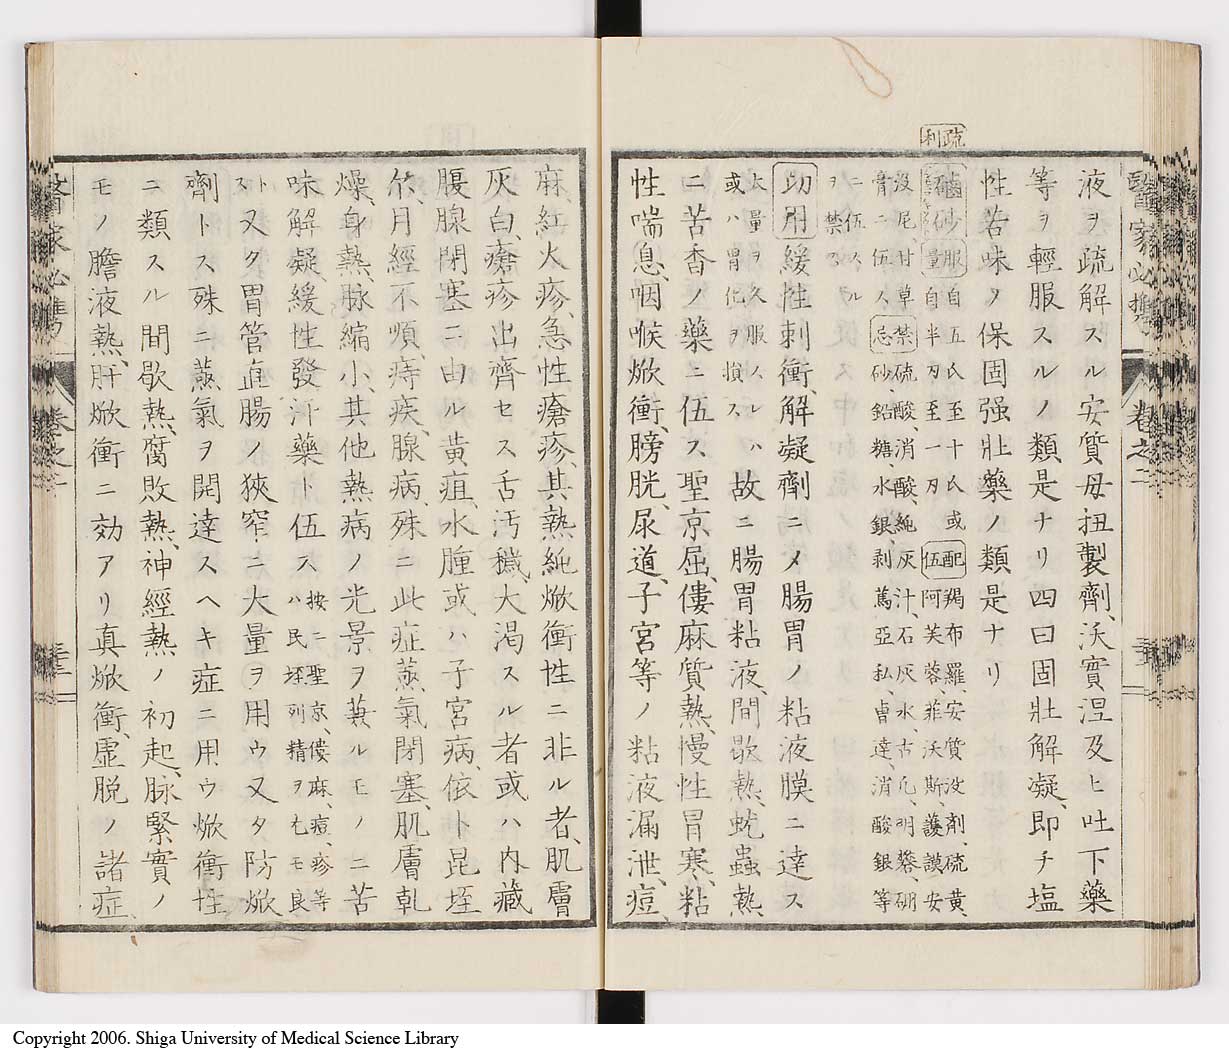 醫家必携 卷之二
液ヲ疏解スル安質母扭製劑、沃實涅及ヒ吐下藥
等ヲ輕服スルノ類是ナリ四曰固壯解凝、即チ塩
性苦味ヲ保固强壯藥ノ類是ナリ
疏利
磠砂 服量 自五氏至十氏或
自半刄至一刄 配伍 羯布羅、安質没剤、硫黄、
阿芙蓉、菲沃斯、護謨安
没尼、甘草 禁忌 硫酸、消酸、純灰汁、石灰水、古凡、明礬、硼
膏ニ伍ス 砂、鉛糖、水銀、剥篤亞私、曹達、消酸銀等
ニ伍スル
ヲ禁ス
功用 緩性刺衝、解凝劑ニメ腸胃ノ粘液膜ニ達ス
大量ヲ久服スレハ
或ハ胃化ヲ損ス 故ニ腸胃粘液、間歇熱、蚘蟲熱
ニ苦香ノ藥ニ伍ス聖京屈、僂麻質熱、慢性胃寒、粘
性喘息、咽喉焮衝、膀胱、尿道、子宮等ノ粘液漏泄、痘、
麻、紅火疹、急性瘡疹、其熱純焮衝性ニ非ル者、肌膚
灰白、瘡疹出齊セス舌汚穢、大渇スル者或ハ内藏
腹腺閉塞ニ由ル黄疸、水腫或ハ子宮病、依卜昆垤
尓、月經不順、痔疾、腺病、殊ニ此症蒸氣閉塞、肌膚乾
燥、身熱、脉縮小、其他熱病ノ光景ヲ兼ルモノニ苦
味解凝、緩性發汗藥ト伍ス 按ニ聖京、僂麻、痘、疹等
ハ民垤列精ヲ尤モ良
トス 又タ胃管直腸ノ狹窄ニ大量ヲ用ウ又タ防焮
劑トス殊ニ蒸氣ヲ開達スヘキ症ニ用ウ焮衝性
ニ類スル間歇熱、腐敗熱、神經熱ノ初起、脉緊實ノ
モノ膽液熱、肝焮衝ニ効アリ真焮衝、虚脱ノ諸症、
醫家必携 卷之二